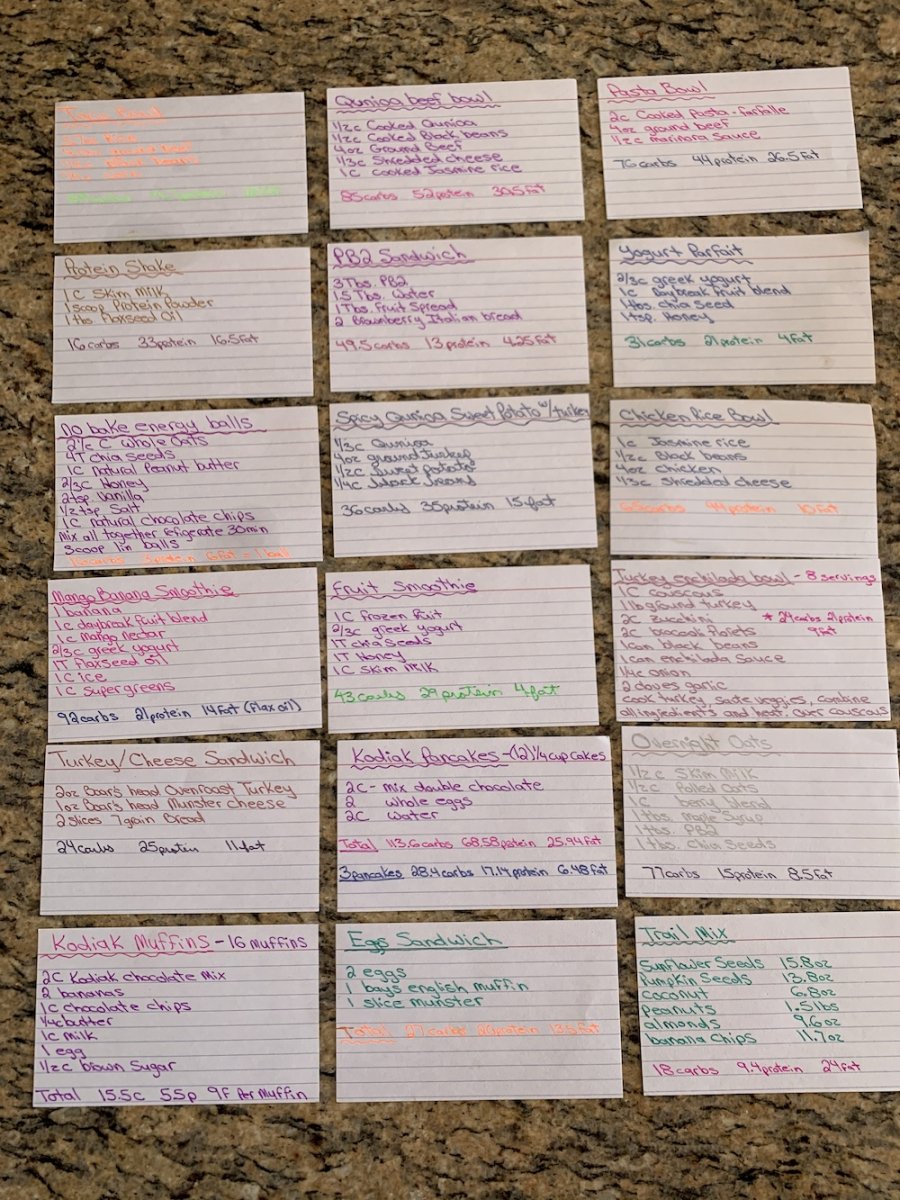 Bowl
Qunioa beef bowl
1/2c Cooked Qunioa
1/2c Cooked Black beans
4oz Ground Beef
1/3c Shredded cheese
1c cooked Jasmine rice
85carbs 52protein 30.5fat
Pasta Bowl
2c Cooked Pasta - farfalle
4oz ground beef
1/2c marinara sauce
76carbs 44protein 26.5fat
Protein Shake
1c Skim Milk
1scoop Protein Powder
1tbs Flaxseed Oil
16carbs 33protein 16.5fat
PB2 Sandwich
3 Tbs. PB2
1.5 Tbs. Water
1 Tbs. Fruit Spread
2 Brownberry Italian bread
49.5carbs 13protein 4.25fat
Yogurt Parfait
2/3c greek yogurt
1c daybreak fruit blend
1tbs. chia Seed
1tsp. Honey
31carbs 21protein 4fat
No bake energy balls
C whole Oats
4T chia seeds
1C natural Peanut butter
2/3C Honey
2tsp. Vanilla
1/2tsp. Salt
1C natural chocolate chips
Mix all together efigerate 30min
Scoop 1in balls
6fat = 1ball
Spicy Qunioa Sweet Potato w/turkey
1/3c Qunioa
4oz ground turkey
1/2c Sweet potato
1/4c black beans
36carbs 35protein 15fat
Chicken Rice Bowl
1c Jasmine rice
1/2c Black beans
4oz chicken
1/3c Shredded cheese
65carbs 44protein 10fat
Mango Banana Smoothie
1 banana
1c daybreak fruit blend
1c mango nectar
2/3c greek yogurt
1T flaxseed oil
1C ice
1C supergreens
92carbs 21protein 14fat (flax oil)
Fruit Smoothie
1C frozen fruit
2/3c greek yogurt
1T chia Seeds
1T Honey
1C SKIM MILK
43carbs 29protein 4fat
Turkey enchilada bowl - 8 servings
1C couscous
1lb ground turkey
2C zucchini * 29carbs 21protein
2C broccoli florets 9fat
1can black beans
1can enchilada sauce
1/4c onion
2 cloves garlic
cook turkey, saute veggies, combine
all ingredients and heat. Over couscous
Turkey/Cheese Sandwich
2oz Boar's head Ovenroast Turkey
1oz Boar's head Munster cheese
2slices 7grain Bread
24carbs 25protein 11fat
Kodiak Pancakes - (12) 1/4cup cakes
2C - mix double chocolate
2 whole eggs
2C water
Total 113.6carbs 68.58protein 25.94fat
3pancakes 28.4carbs 17.14protein 6.48fat
Overnight Oats
1/2c Skim Milk
1/2c Rolled Oats
1c berry blend
1tbs. maple Syrup
1tbs. PB2
1tbs. Chia Seeds
77carbs 15protein 8.5fat
Kodiak Muffins - 16 muffins
2C Kodiak chocolate mix
2 bananas
1C chocolate chips
1/4c butter
1C milk
1 egg
1/2C brown Sugar
Total 15.5c 5.5p 9F Per Muffin
Egg Sandwich
2 eggs
1 bays english muffin
1 slice munster
Total 27carbs protein 13.5fat
Trail Mix
Sunflower Seeds 15.8oz
Pumpkin Seeds 13.8oz
coconut 6.8oz
peanuts 1.5lbs
almonds 9.6oz
banana chips 11.7oz
18carbs 9.4protein 24fat